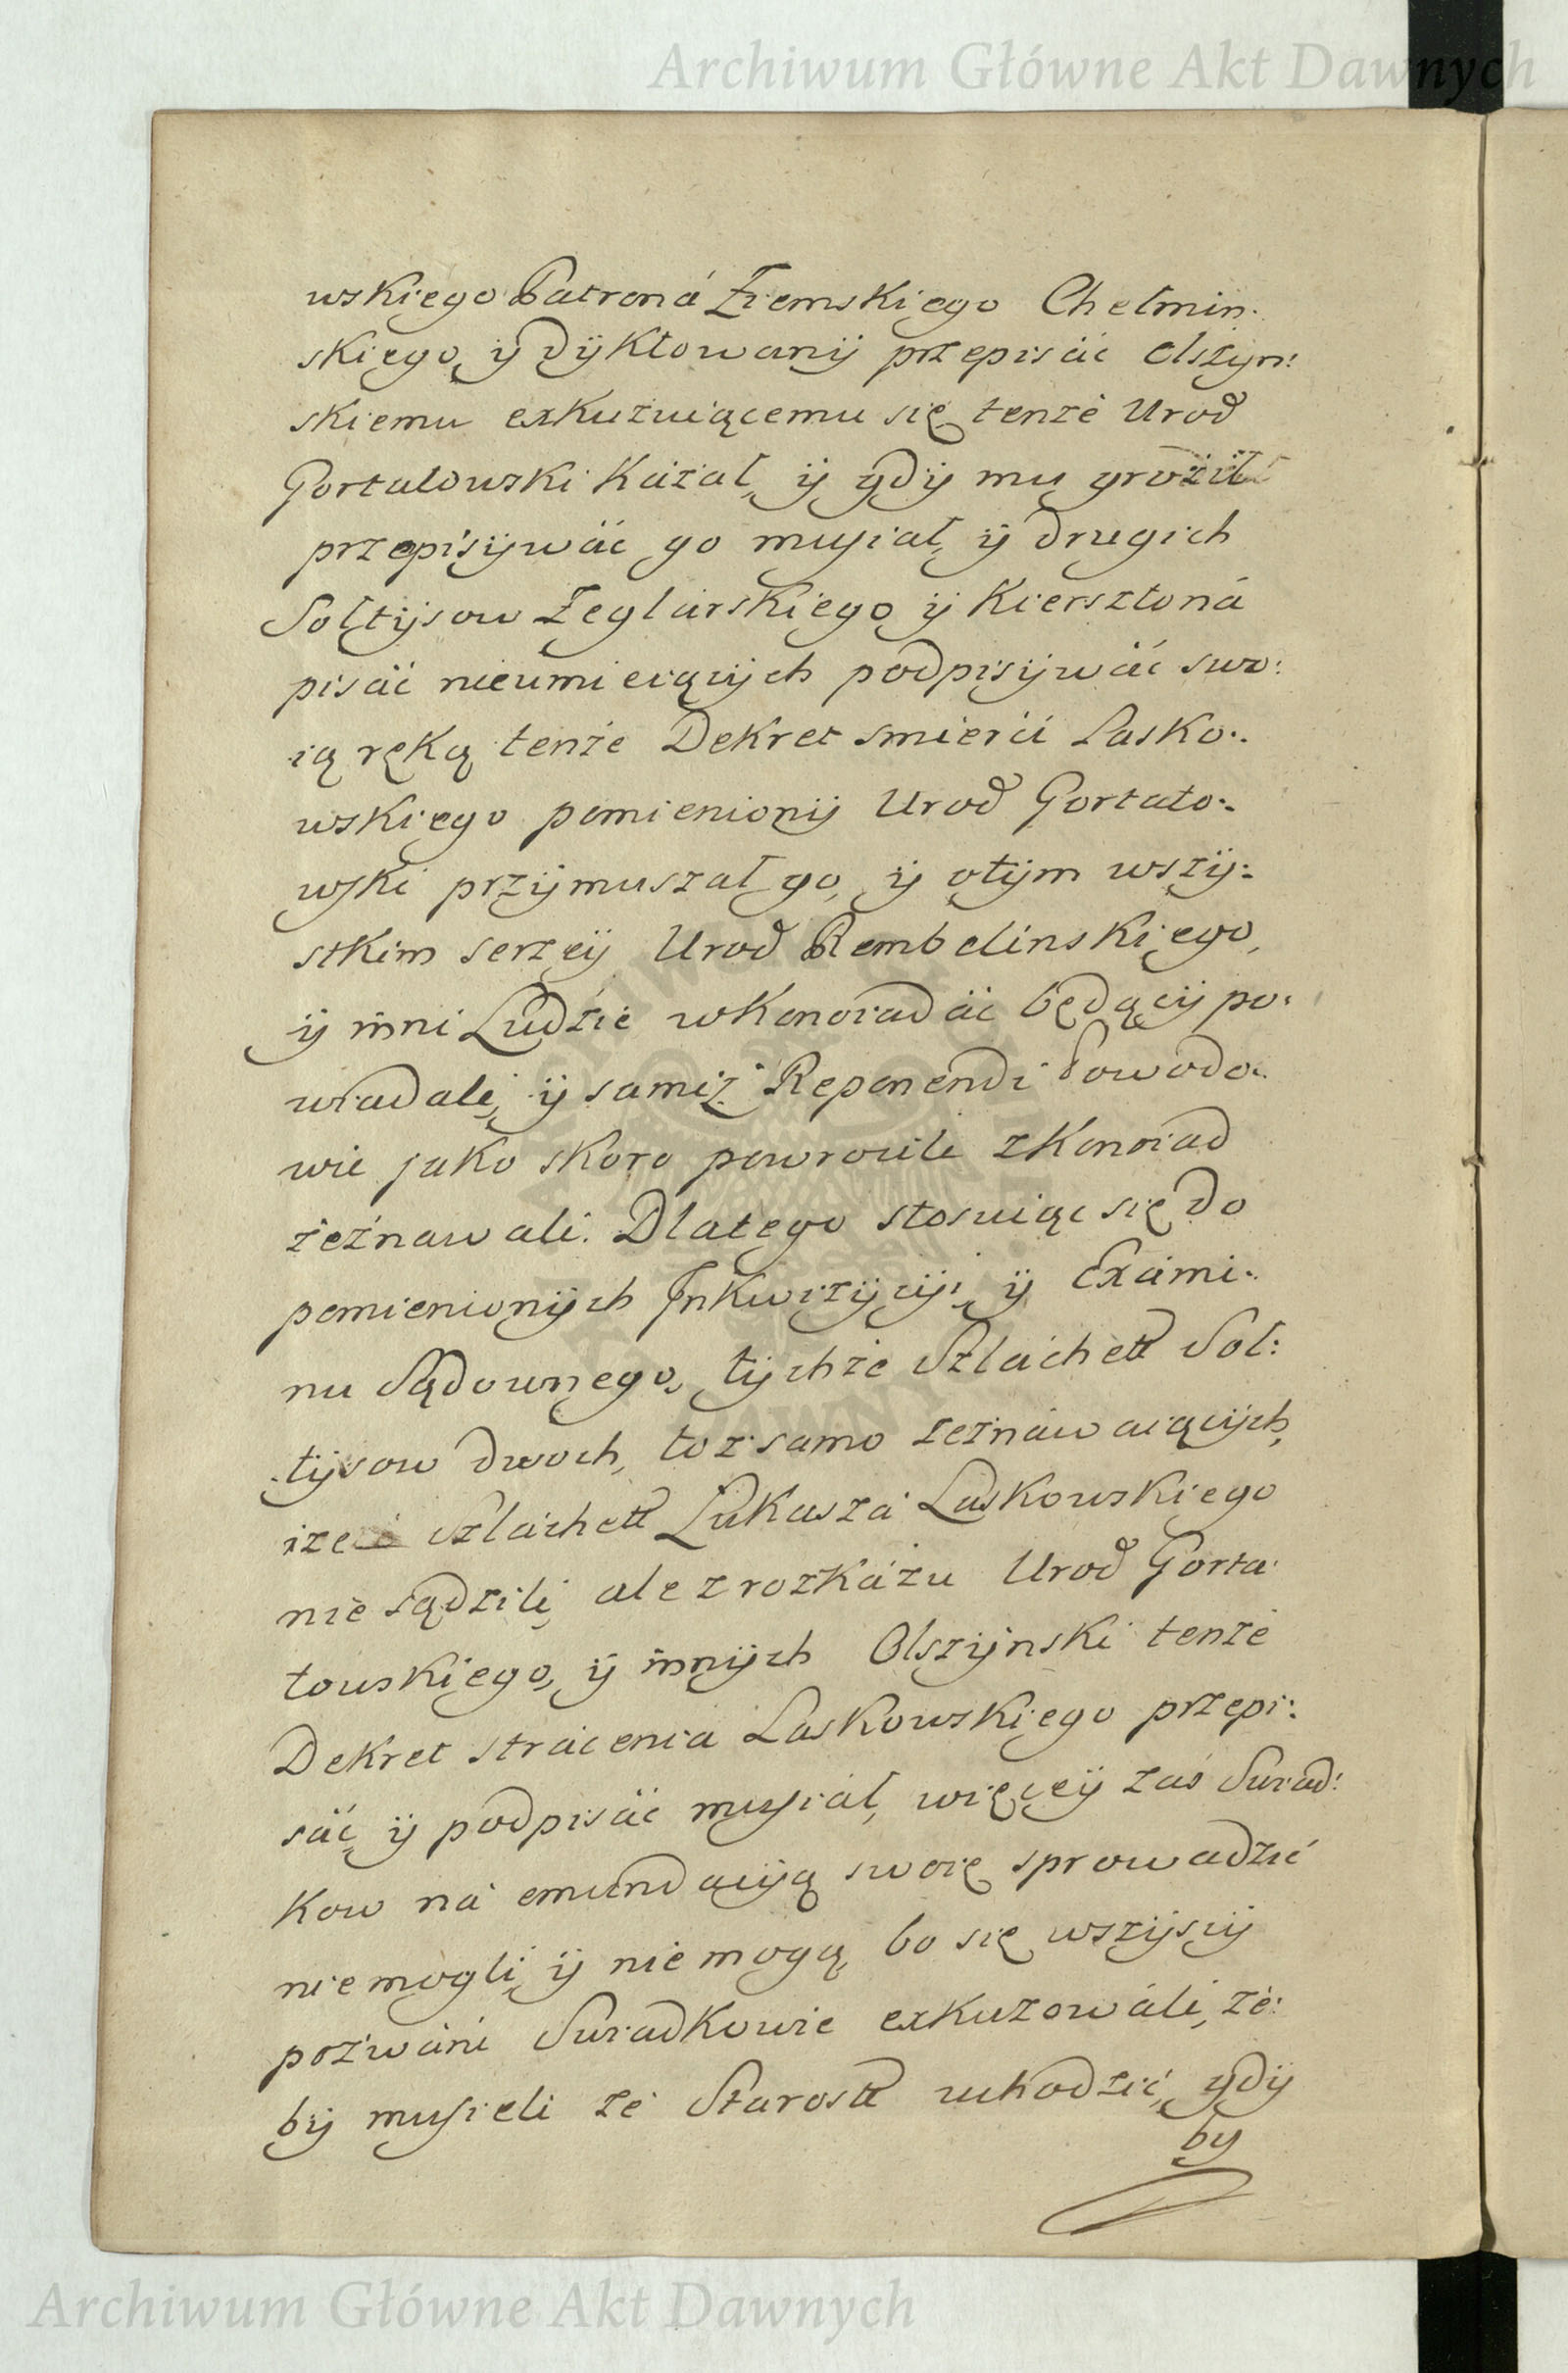 Archiwum Główne Akt Dawnych
wskiego Patroná Ziemskiego Chełmin.
skiego, ÿ dÿktowanÿ przepisáć Olszyn:
skiemu exkuzuiącemu się tenże Urod
Gortatowski kazał, ÿ gdÿ mu groził
przepisÿwáć go musiał, ÿ drugich
Sołtÿsow Zeglárskiego ÿ Kiersztoná
pisáć nieumieiącÿch podpisÿwáć swo:
ią ręką tenże Dekret smierći Lasko:.
wskiego pomienionÿ Urod Gortato:.
wski przÿmuszał go, ÿ otÿm wszÿ:
stkim szerzeÿ Urod Rembelinskiego,
ÿ inni Ludzie w Konoiadáć będącÿ po:
wiadali, ÿ samiż Reponendi Powodo:.
wie jako skoro powroćili z Konoiad
zeznawali. Dlatego stosuiąc się do
pomienionÿch Inkwizÿcÿi, ÿ Exámi:.
nu Sądownego, tÿchże Szláchett Soł:
tÿsow dwoch, toż samo zeznáwaiącÿch,
iże Szláchett Łukasza Laskowskiego
nie sądzili, ale z rozkázu Urod Gorta:
towskiego, ÿ innÿch Olszÿnski tenże
Dekret strácenia Laskowskiego przepi:
sáć, ÿ podpisáć musiał, więceÿ zaś Swiad:
kow ná emundacÿą swoię sprowadzić
niemogli, ÿ nie mogą, bo się wszÿscÿ
pozwáni Swiadkowie exkuzowáli, że:
bÿ musieli ze Starostt uchodzić, gdÿ
by
Archiwum Główne Akt Dawnych